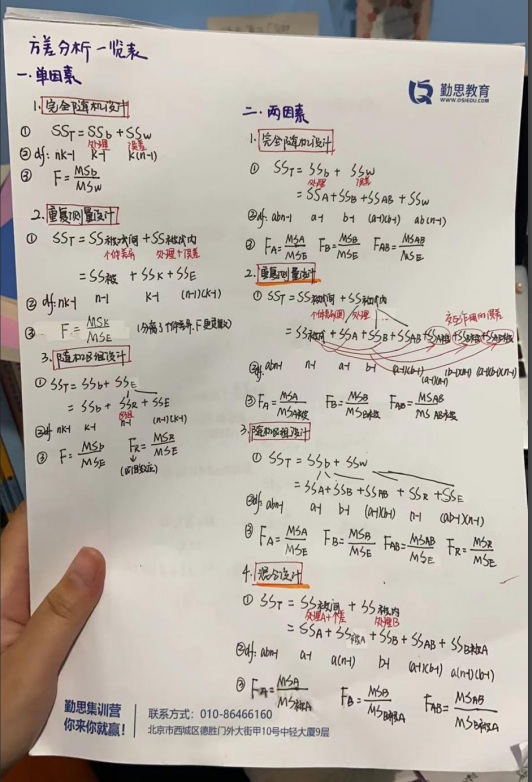 方差分析一览表
一.单因素
1.完全随机设计
① SST = SSb + SSw
处理 误差
② df: nk-1 k-1 k(n-1)
③ F = MSb/MSw
2.重复测量设计
① SST = SS被试间 + SS被试内
个体差异 处理+误差
= SS被 + SSK + SSE
② df nk-1 n-1 k-1 (n-1)(k-1)
③ F = MSK/MSE (分离了个体差异,F更灵敏)
3.随机区组设计
① SST = SSb + SSE
= SSb + SSR + SSE
区组
② df nk-1 k-1 n-1 (n-1)(k-1)
③ F = MSb/MSE FR = MSR/MSE
(区组效应)
勤思教育
WWW.QSIEDU.COM
二.两因素
1.完全随机设计
① SST = SSb + SSw
处理 误差
= SSA + SSB + SSAB + SSw
② df: abn-1 a-1 b-1 (a-1)(b-1) ab(n-1)
③ FA = MSA/MSE FB = MSB/MSE FAB = MSAB/MSE
2.重复测量设计
① SST = SS被试间 + SS被试内
处理 交互作用的误差
= SS被试间 + SSA + SSB + SSAB + SSA被 + SSB被 + SSAB被
② df: abn-1 n-1 a-1 b-1 (a-1)(b-1) (a-1)(n-1) (b-1)(n-1) (a-1)(b-1)(n-1)
③ FA = MSA/MSA被 FB = MSB/MSB被 FAB = MSAB/MSAB被
3.随机区组设计
① SST = SSb + SSw
= SSA + SSB + SSAB + SSR + SSE
② df: abn-1 a-1 b-1 (a-1)(b-1) n-1 (ab-1)(n-1)
③ FA = MSA/MSE FB = MSB/MSE FAB = MSAB/MSE FR = MSR/MSE
4.混合设计
① SST = SS被间 + SS被内
处理A+个差 处理B
= SSA + SS被A + SSB + SSAB + SSB被A
② df: abn-1 a-1 a(n-1) b-1 (a-1)(b-1) a(n-1)(b-1)
③ FA = MSA/MS被A FB = MSB/MSB被A FAB = MSAB/MSB被A
勤思集训营
你来你就赢!
联系方式:010-86466160
北京市西城区德胜门外大街甲10号中轻大厦9层